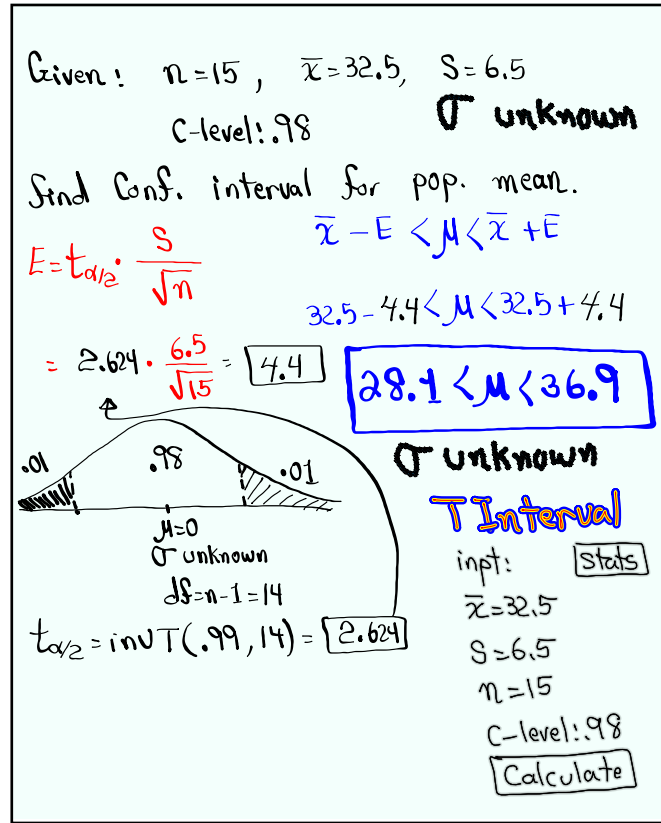 Given: n=15, x̄=32.5, S=6.5
C-level:.98
σ unknown
find Conf. interval for pop. mean.
x̄-E<μ<x̄+E
E=tα/2·S/√n
32.5-4.4<μ<32.5+4.4
=2.624·6.5/√15=4.4
28.1<μ<36.9
.01 .98 .01
μ=0
σ unknown
df=n-1=14
tα/2=invT(.99,14)=2.624
σ unknown
T Interval
inpt: Stats
x̄=32.5
S=6.5
n=15
C-level:.98
Calculate